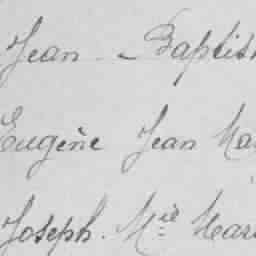 Jean - Baptis
Eugène Jean Ma
Joseph. Mie Mari